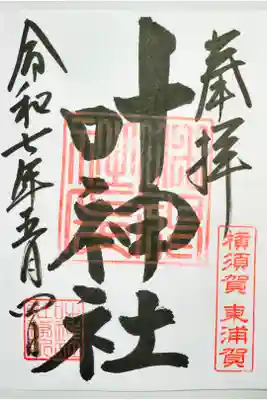 奉拝
横須賀 東浦賀
叶神社
令和七年五月四日